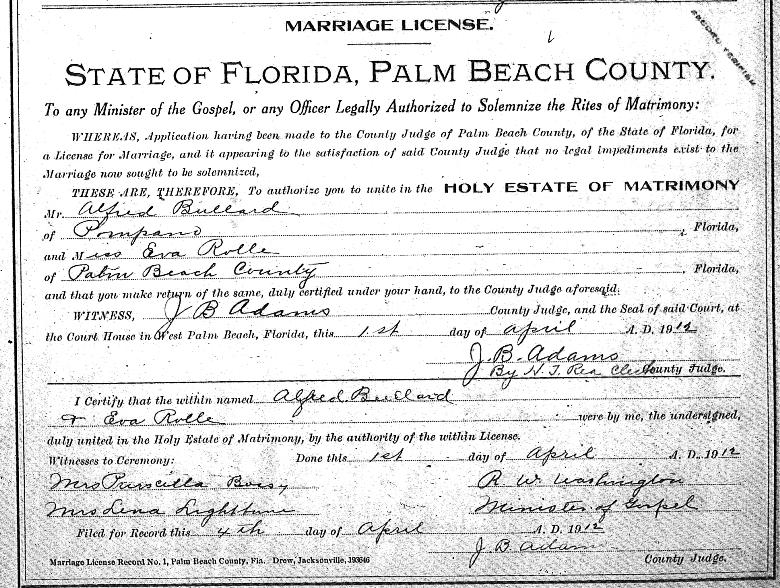 MARRIAGE LICENSE.
STATE OF FLORIDA, PALM BEACH COUNTY.
To any Minister of the Gospel, or any Officer Legally Authorized to Solemnize the Rites of Matrimony:
WHEREAS, Application having been made to the County Judge of Palm Beach County, of the State of Florida, for
a License for Marriage, and it appearing to the satisfaction of said County Judge that no legal impediments exist to the
Marriage now sought to be solemnized,
THESE ARE, THEREFORE, To authorize you to unite in the HOLY ESTATE OF MATRIMONY
Mr. Alfred Bullard
of Pompano Florida,
and Miss Eva Rolle
of Palm Beach County Florida,
and that you make return of the same, duly certified under your hand, to the County Judge aforesaid.
WITNESS, J B Adams County Judge, and the Seal of said Court, at
the Court House in West Palm Beach, Florida, this 1st day of April A. D. 1912
J. B. Adams
By H. J. Rea Clerk County Judge.
I Certify that the within named Alfred Bullard
& Eva Rolle were by me, the undersigned,
duly united in the Holy Estate of Matrimony, by the authority of the within License.
Witnesses to Ceremony: Done this 1st day of April A. D. 1912
Mrs Priscilla R. W. Washington
Mrs Lena Lightburn Minister of Gospel
Filed for Record this 4th day of April A. D. 1912
J B Adams County Judge.
Marriage License Record No. 1, Palm Beach County, Fla. Drew, Jacksonville, J93646